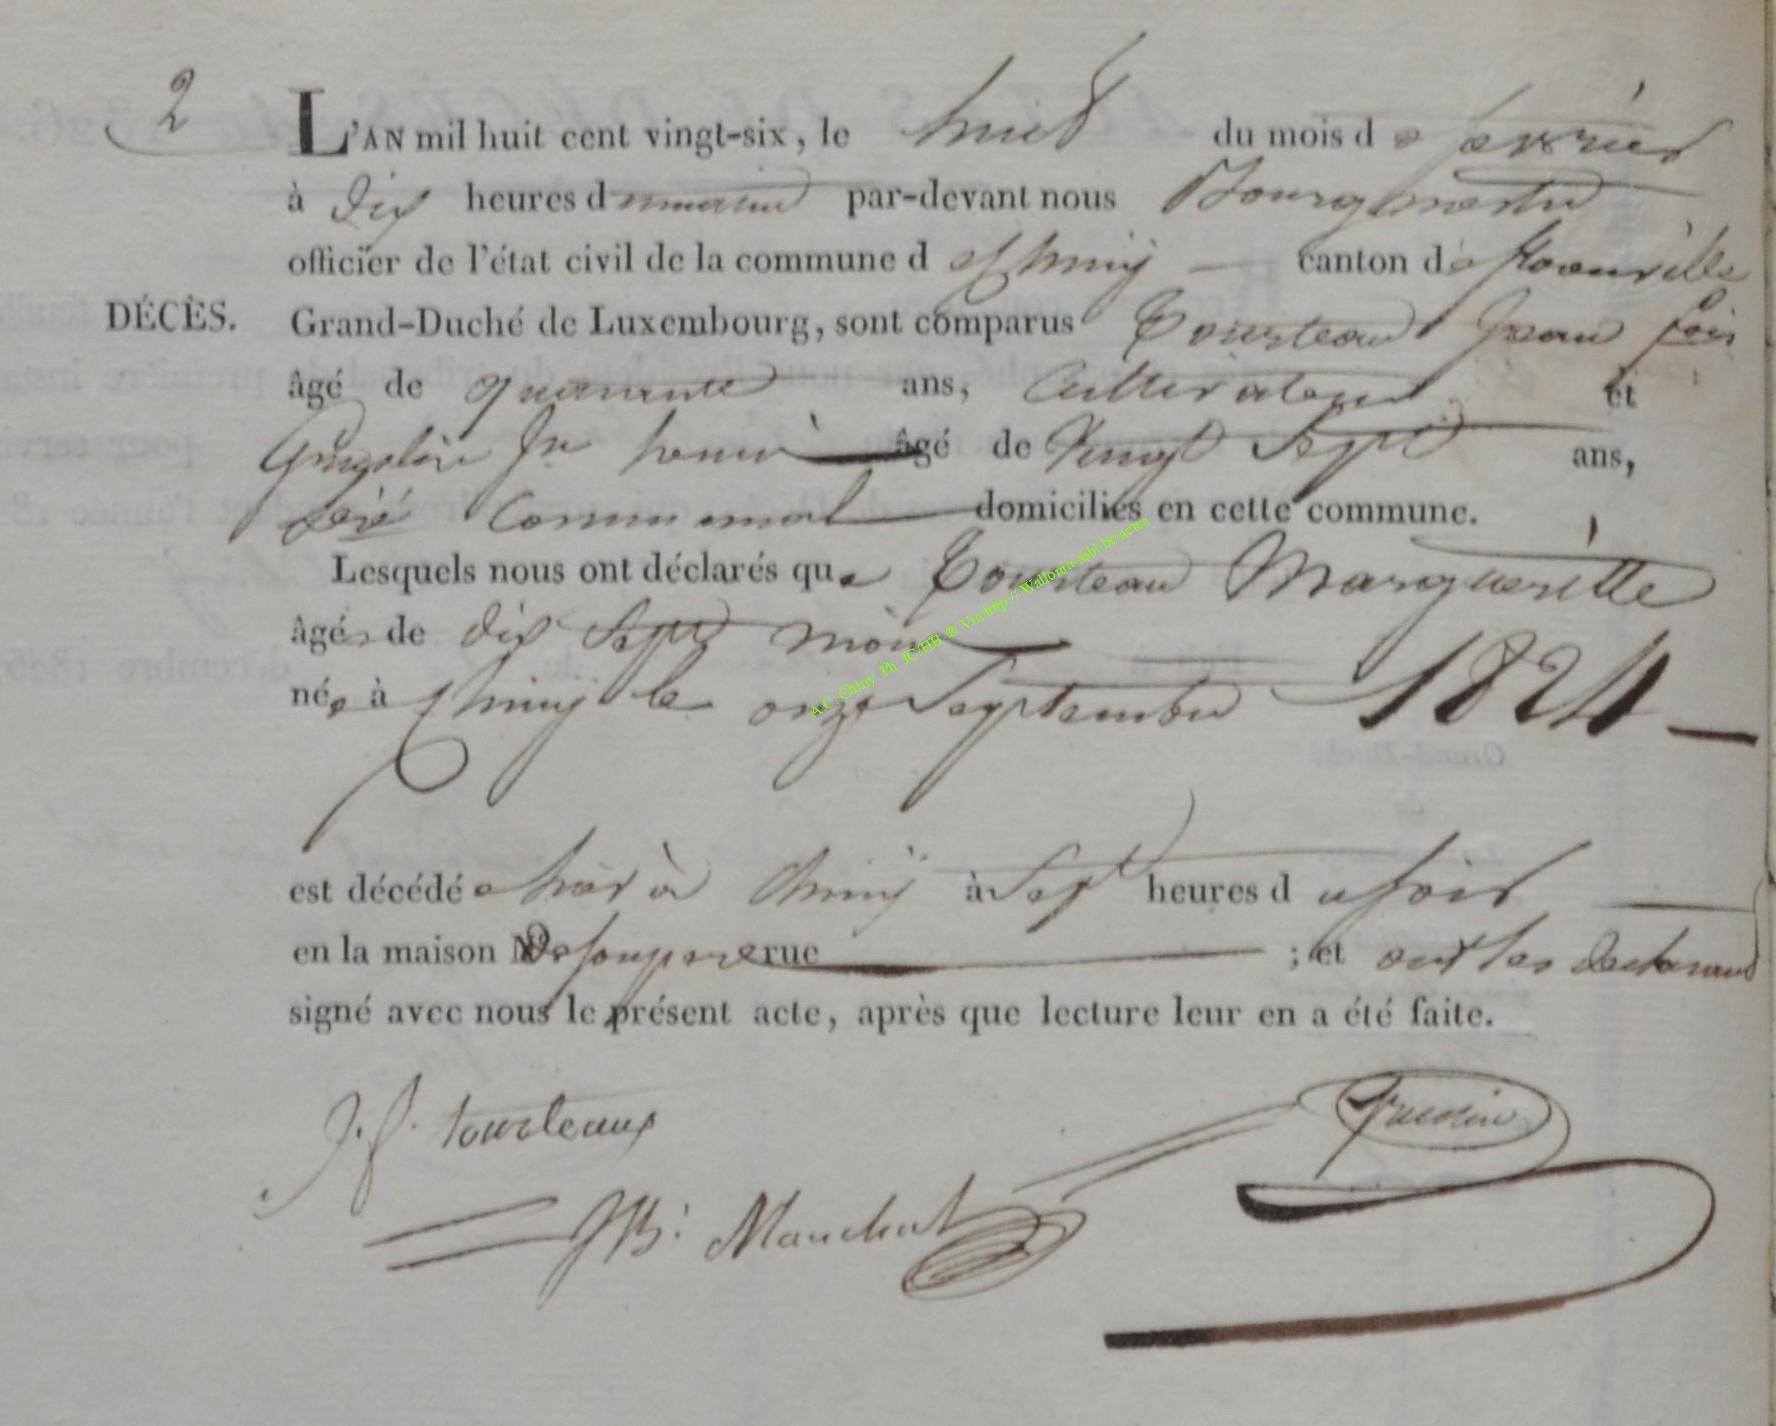 2
L'AN mil huit cent vingt-six, le huit du mois de fevrier
à dix heures du matin par-devant nous Bourgmestre
officier de l'état civil de la commune de Chiny canton de florenville
DÉCÈS. Grand-Duché de Luxembourg, sont comparus Tourteau Jean fois
âgé de quarante ans, Cultivateur et
Jn henri âgé de Vingt Sept ans,
Communal domiciliés en cette commune.
Lesquels nous ont déclarés que Tourteau Margueritte
âgée de dix Sept mois
née à Chiny le onze Septembre 1824
est décédée hier à Chiny à Sept heures du soir
en la maison No de son pere rue ; et ont les declarans
signé avec nous le présent acte, après que lecture leur en a été faite.
J. f. tourteaux
JB: Manchat
A.C. Chiny Ph JC/HR @ Via http://Wallonia-asbl.be/actes